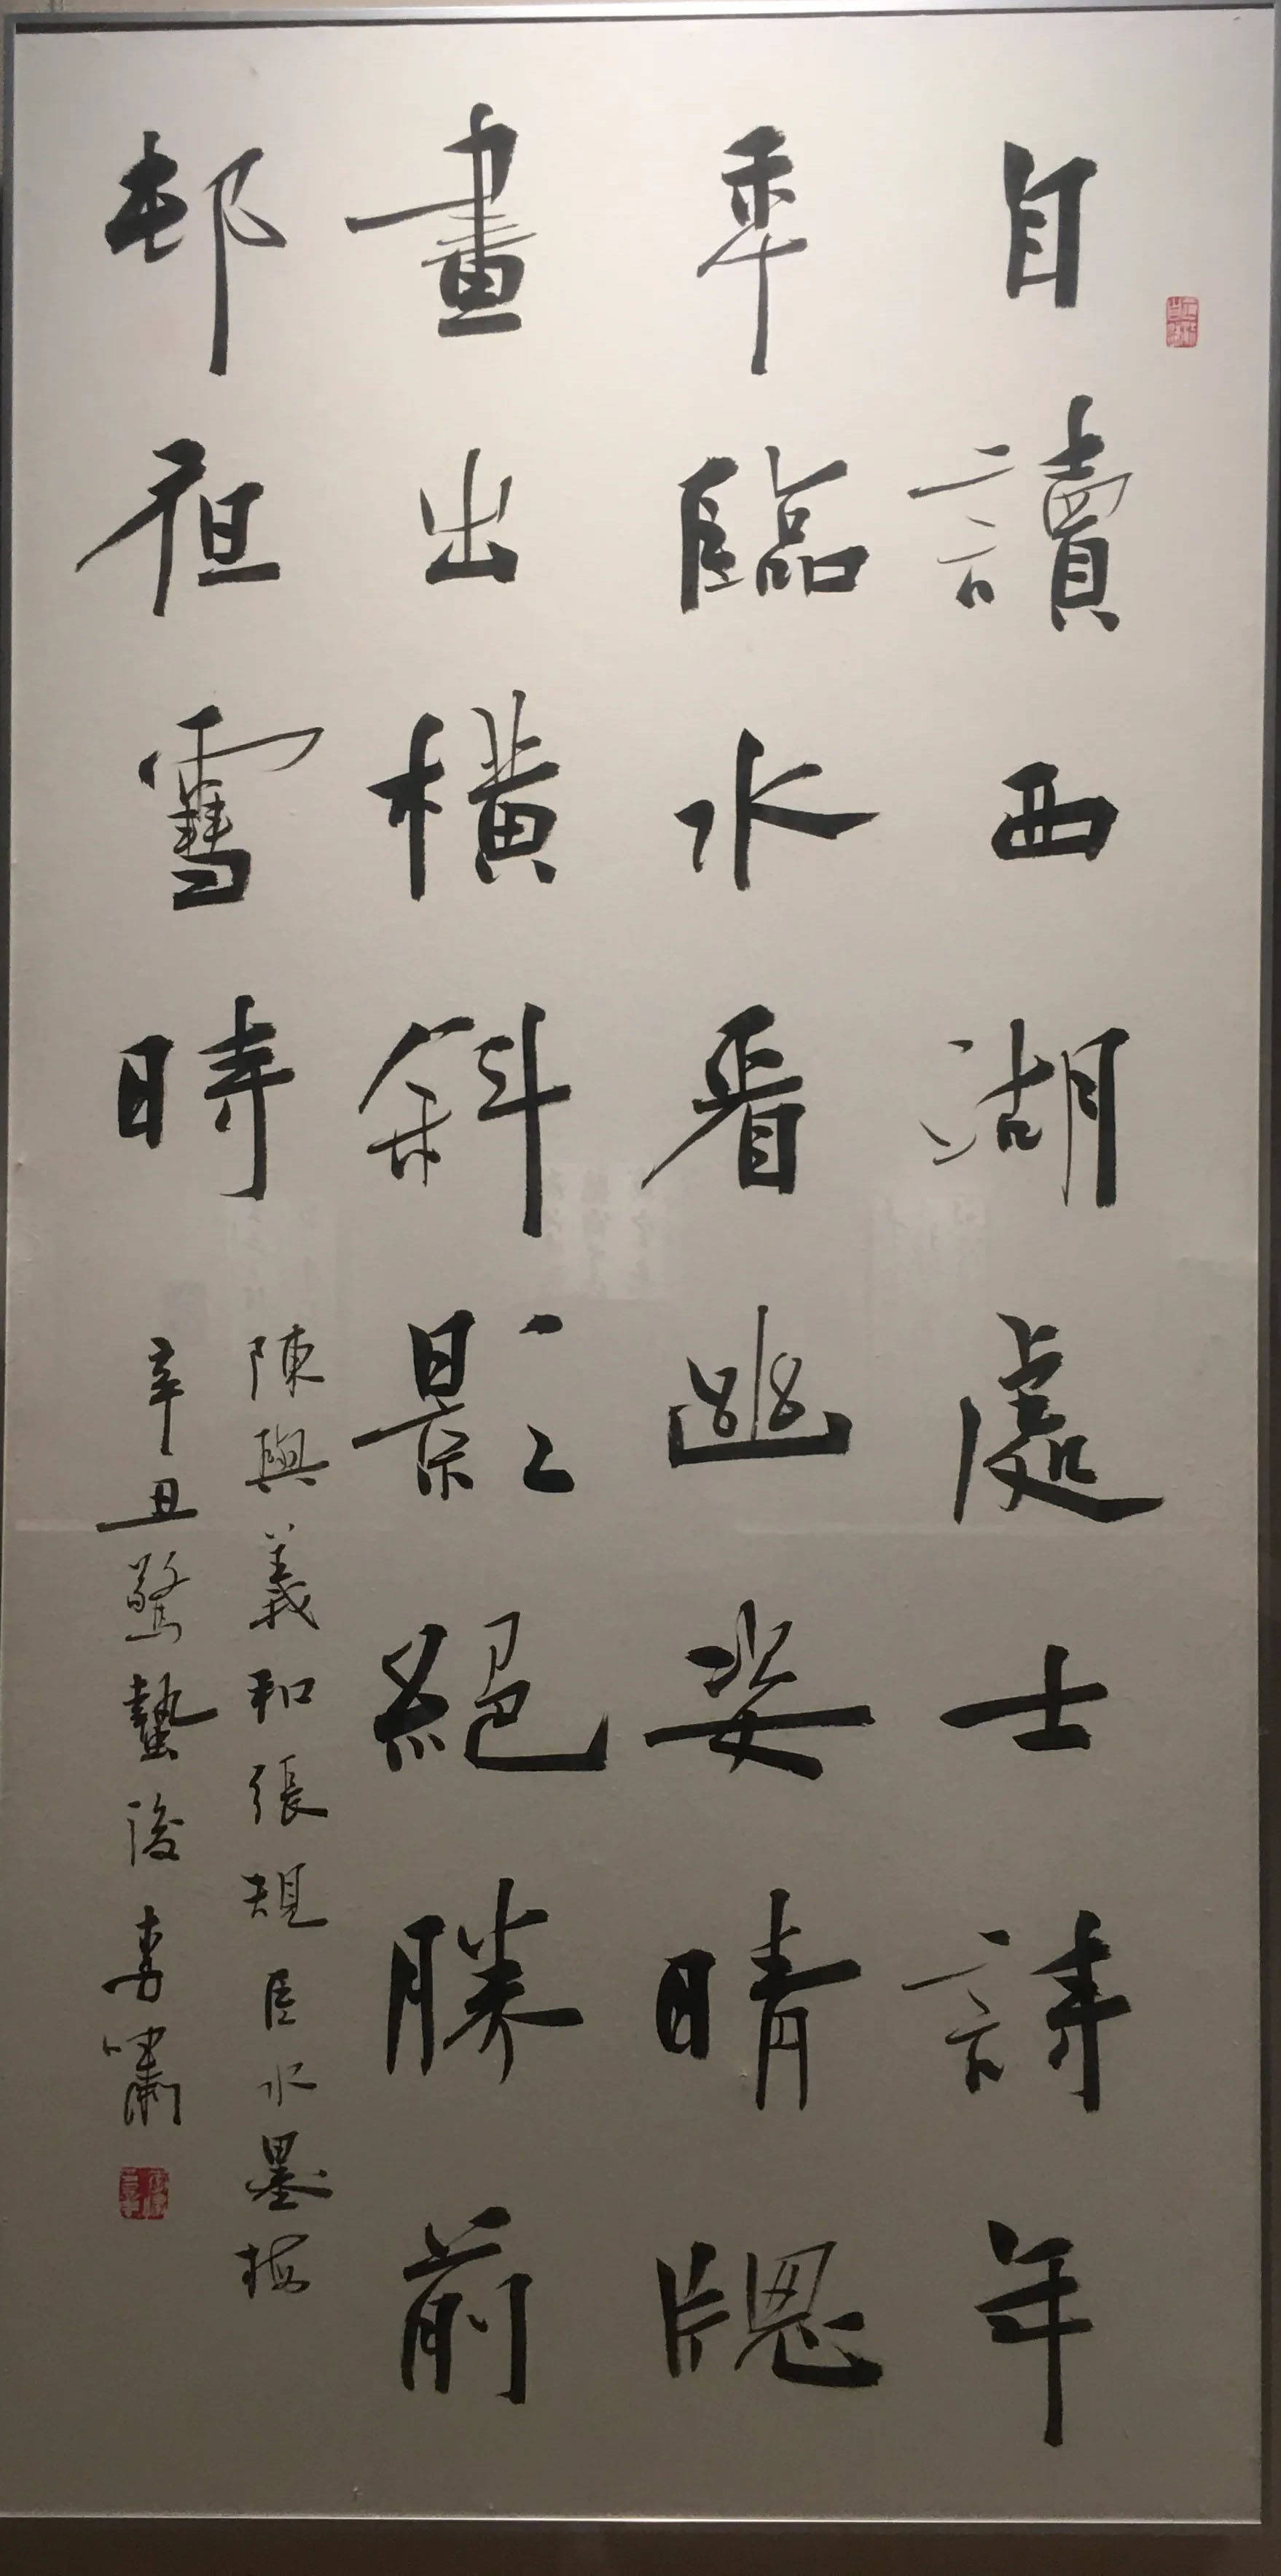 自讀西湖處士詩年
年臨水看幽姿晴牕
畫出橫斜影絕勝前
邨夜雪時
陳與義和張規臣水墨梅
辛丑驚蟄後李嘯